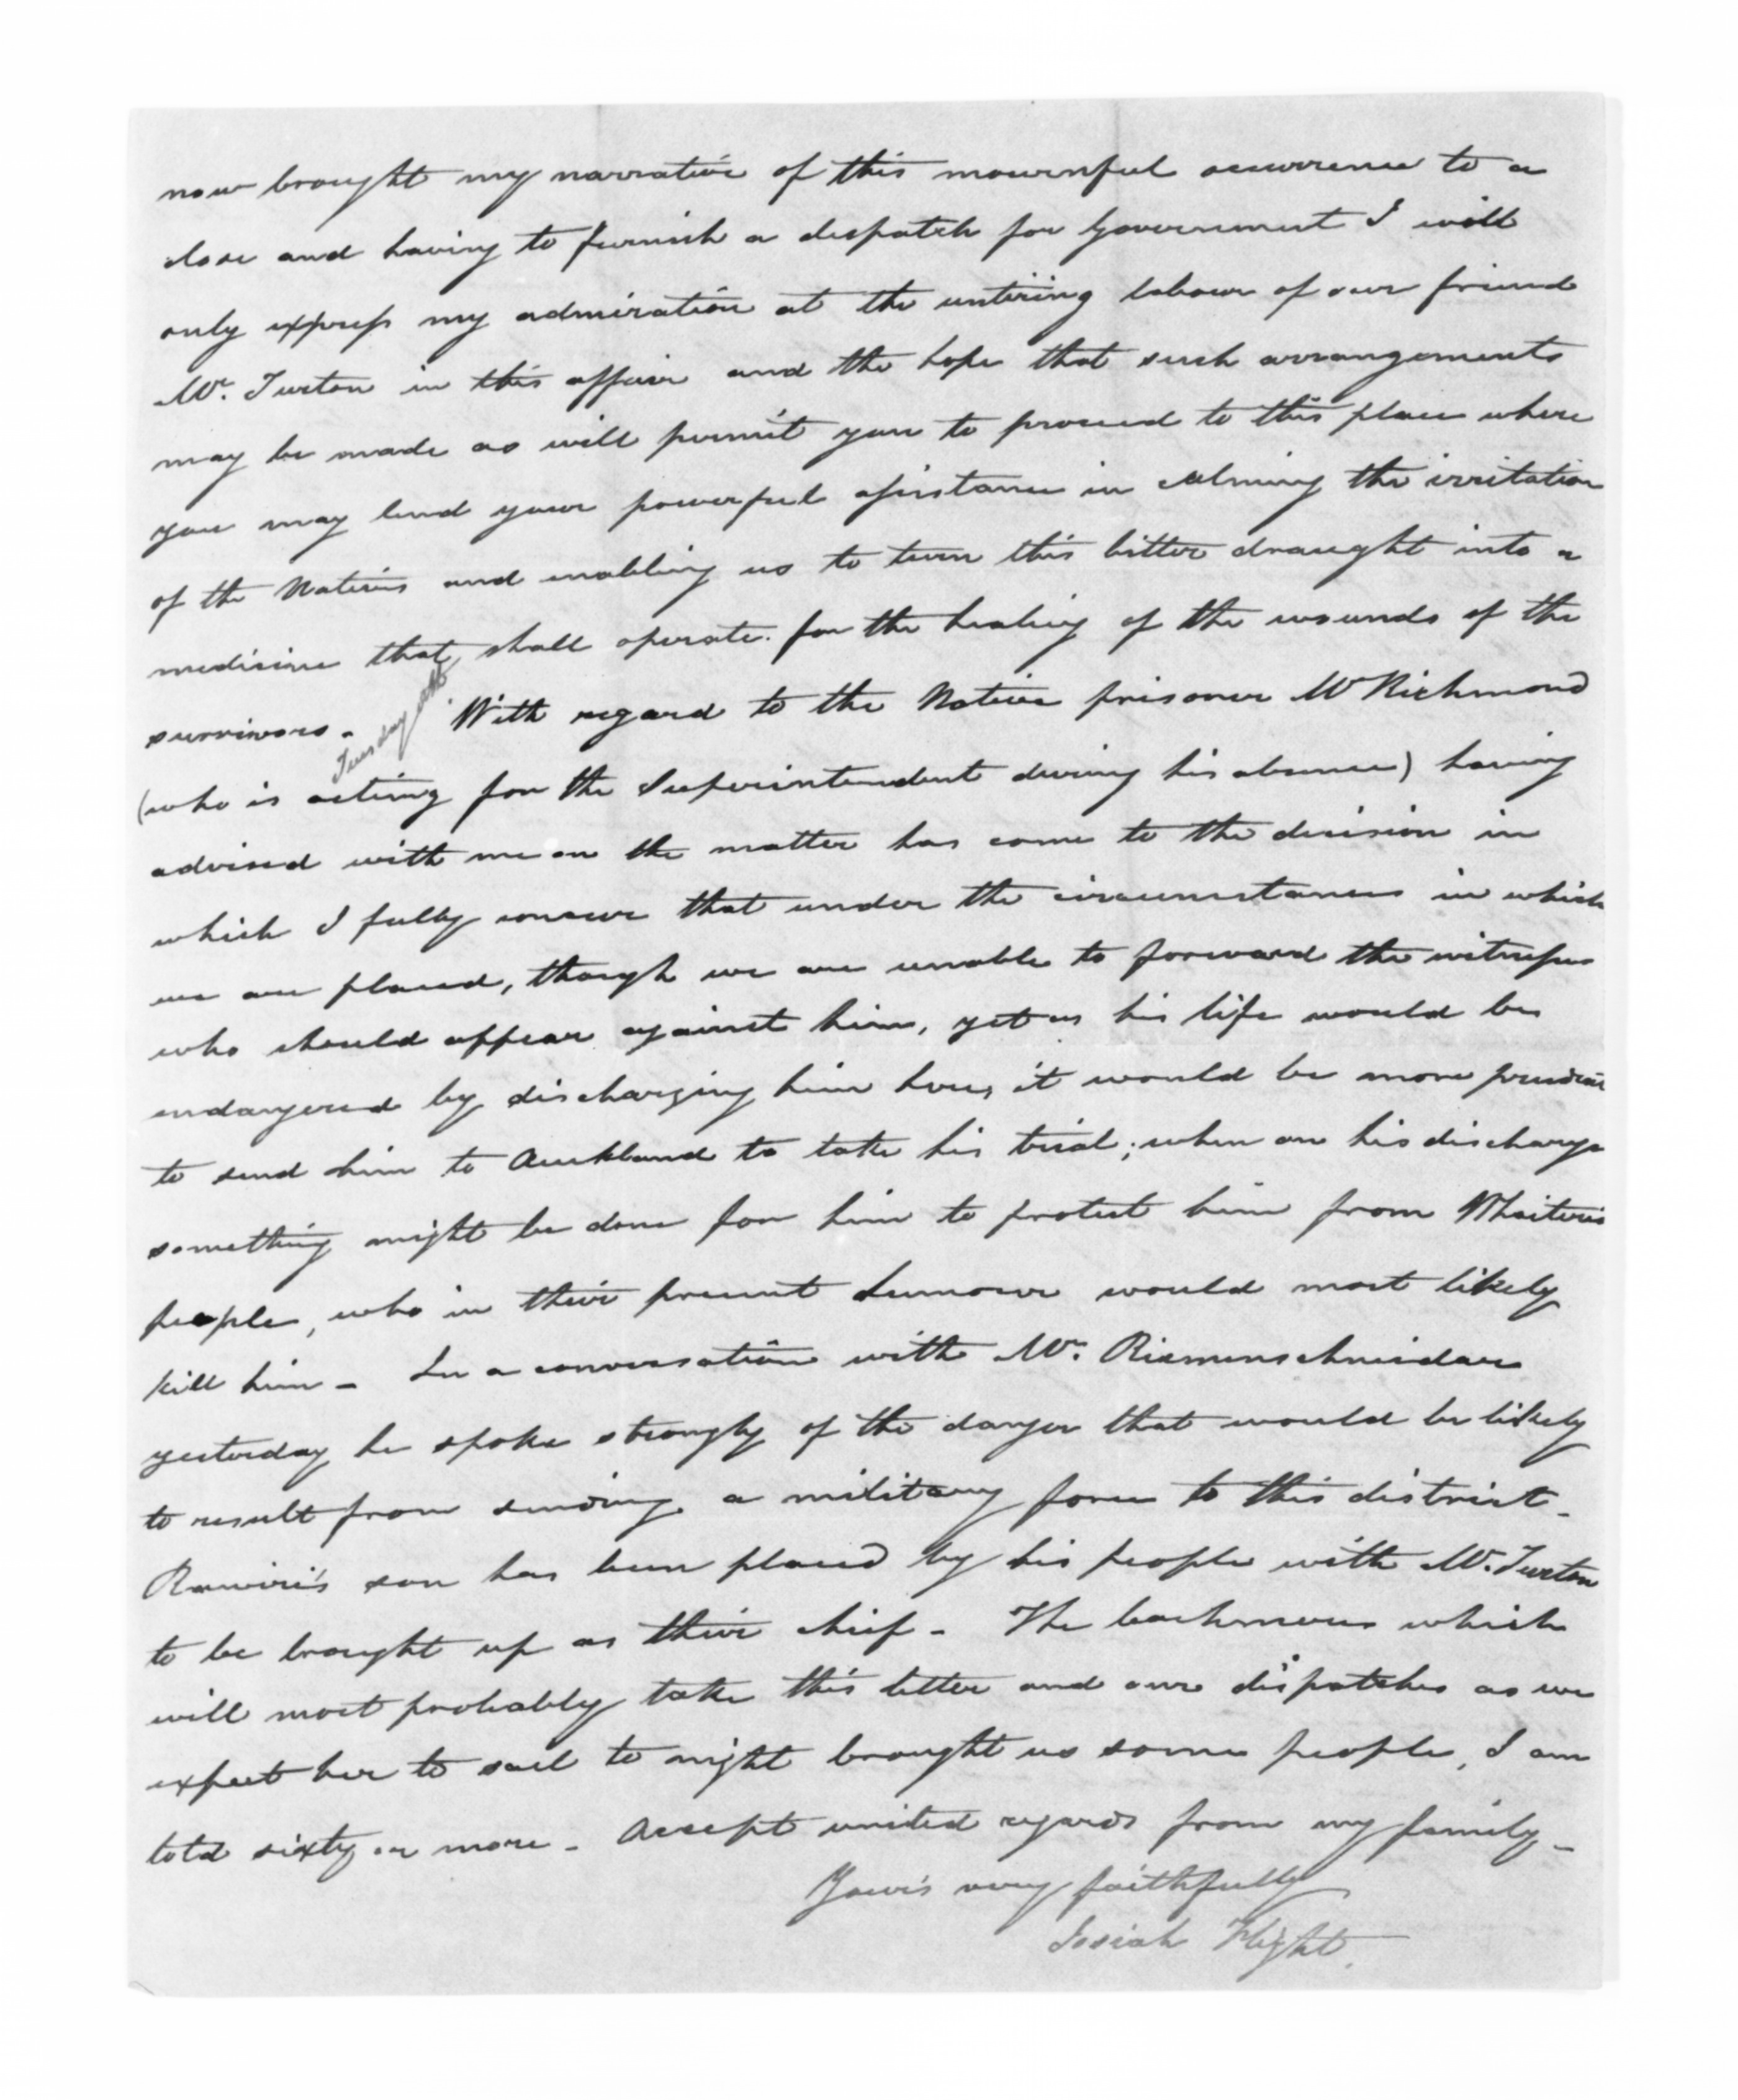 now brought my narrative of this mournful occurrence to a
close and having to furnish a despatch for Government I will
only express my admiration at the untiring labour of our friend
Mr. Turton in this affair and the hope that such arrangements
may be made as will permit you to proceed to this place where
you may lend your powerful assistance in calming the irritation
of the Natives and enabling us to turn this bitter draught into a
medicine that shall operate for the healing of the wounds of the
survivors. Tuesday With regard to the Native prisoner Mr Richmond
(who is acting for the Superintendent during his absence) having
advised with me on the matter has come to the decision in
which I fully concur that under the circumstances in which
we are placed, though we are unable to forward the witnesses
who should appear against him, yet as his life would be
endangered by discharging him here, it would be more prudent
to send him to Auckland to take his trial; when on his discharge
something might be done for him to protect him from Whaiteri's
people, who in their present humour would most likely
kill him - In a conversation with Mr. Riemenschneidar
yesterday he spoke strongly of the danger that would be likely
to result from sending a military force to this district -
Rawiri's son has been placed by his people with Mr. Turton
to be brought up as their chief - The which
will most probably take this letter and our dispatches as we
expect her to sail to night brought us some people, I am
told sixty or more - Accept united regards from my family -
Your's very faithfully
Josiah Flight.